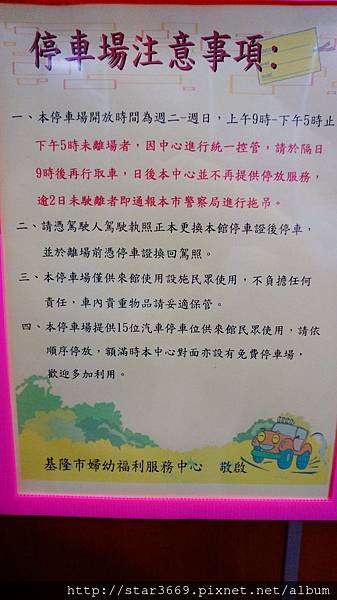 停車場注意事項:
一、本停車場開放時間為週二-週日，上午9時-下午5時止
下午5時未離場者，因中心進行統一控管，請於隔日
9時後再行取車，日後本中心並不再提供停放服務，
逾2日未駛離者即通報本市警察局進行拖吊。
二、請憑駕駛人駕駛執照正本更換本館停車證後停車，
並於離場前憑停車證換回駕照。
三、本停車場僅供來館使用設施民眾使用，不負擔任何
責任，車內貴重物品請妥適保管。
四、本停車場提供15位汽車停車位供來館民眾使用，請依
順序停放，額滿時本中心對面亦設有免費停車場，
歡迎多加利用。
基隆市婦幼福利服務中心 敬啟
http://star3669.pixnet.net/album